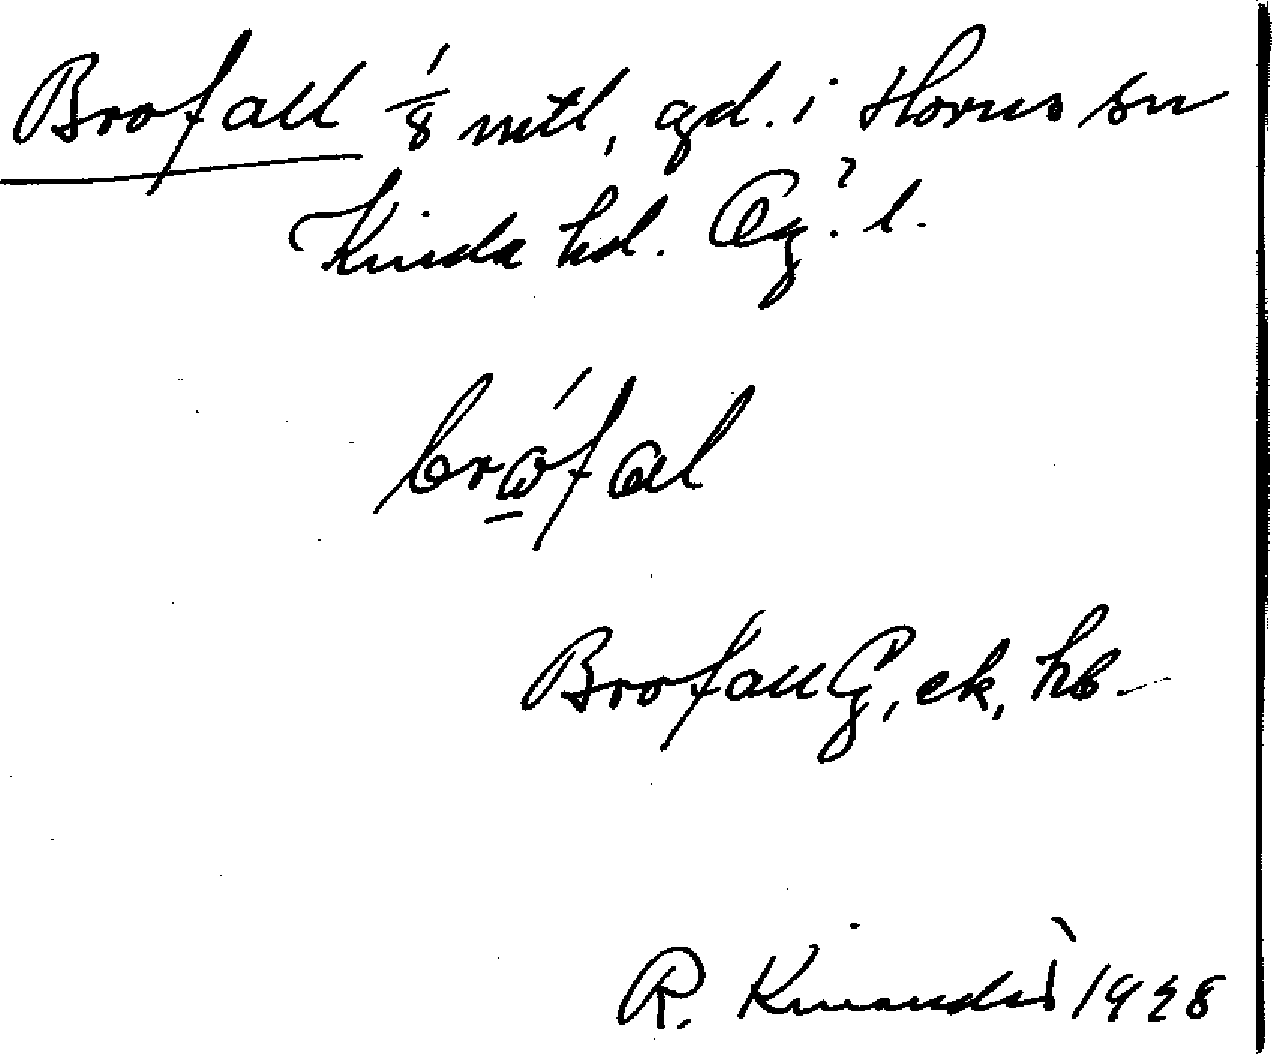 Brofall 1/8 mtl, gd. i Horns sn
Kinda hd. Ög. l.
bro̲´fal
Brofall G, ek, hb.
R. Kinander 1928